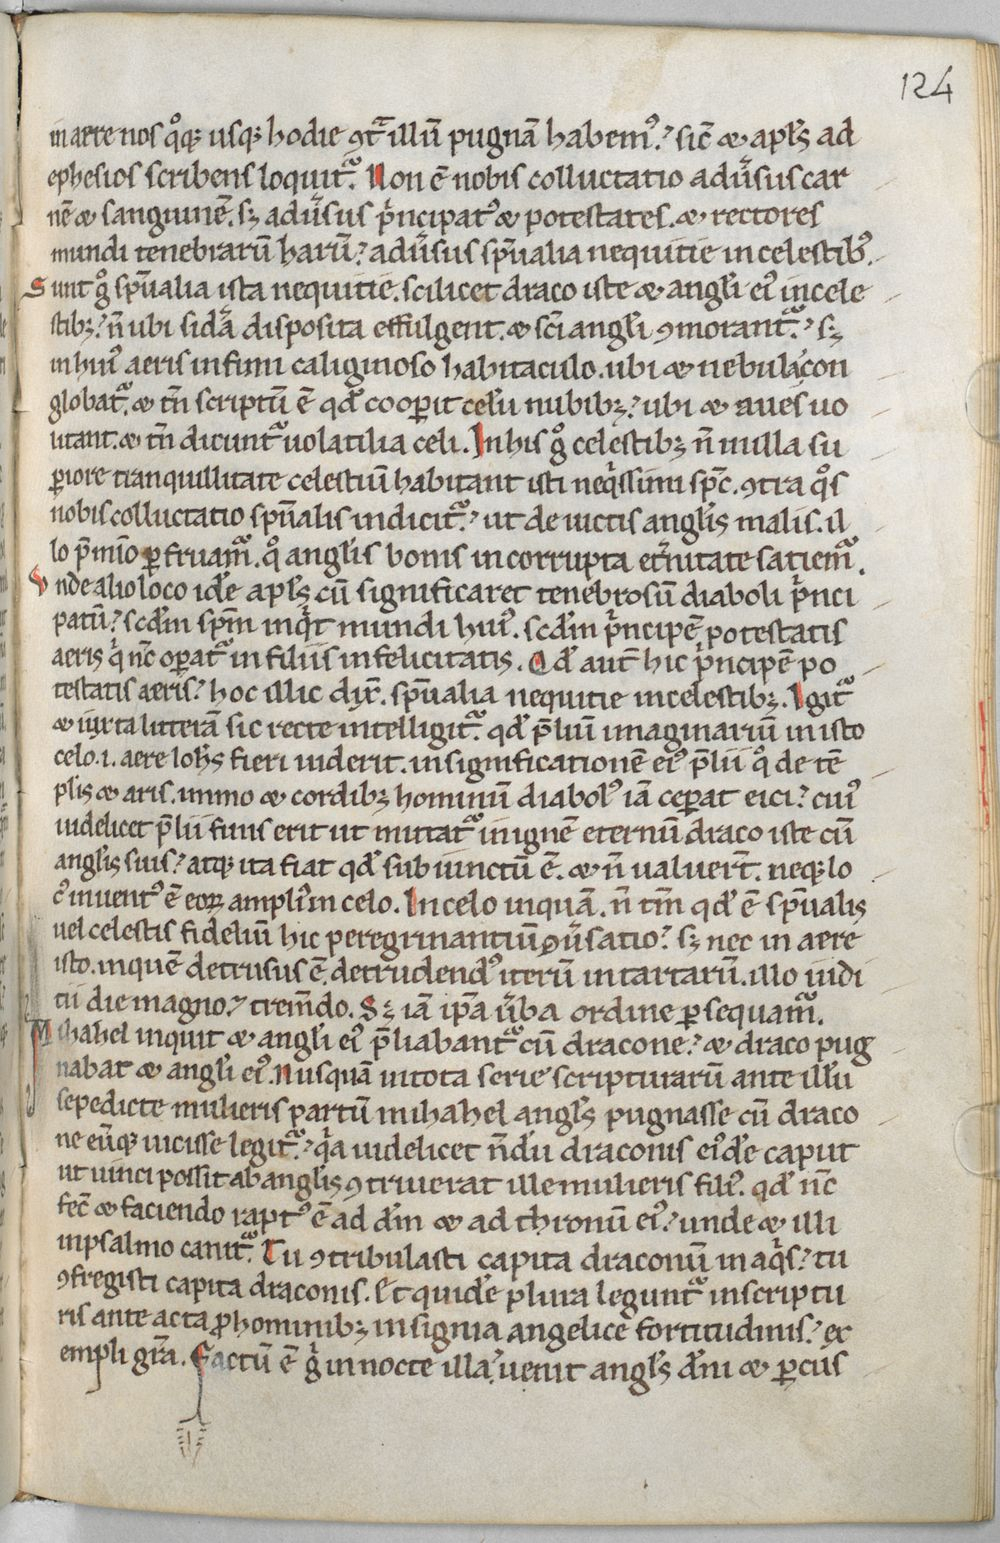 124
in aere nos qͦq; usq; hodie ꝯtᷓ illū pugnā habem᷒. sic̄ & apl̄s ad
ephesios scribens loquit᷑. Non ē nobis colluctatio adūsus car
nē & sanguinē. sꝫ adūsus pͥncipat᷒ & potestates. & rectores
mundi tenebrarū harū? adūsus sp̄ualia nequitie in celestib᷒.
Sunt gͦ sp̄ualia ista nequitie. scilicet draco iste & angl̄i ei᷒ in cele
stibꝫ? n̄ ubi sidᷓa disposita effulgent. & sc̄i angl̄i ꝯmorant᷑. sꝫ
in hui᷒ aeris infimi caliginoso habitaculo. ubi & nebule con
globat᷑. & tn̄ scriptū ē qd̄ cooꝑit celū nubibꝫ? ubi & aues uo
litant. & tn̄ dicunt᷑ uolatilia celi. In his gͦ celestibꝫ n̄ in illa su
ꝑiore tranquillitate celestiū habitant isti neqͥssimi sp̄c. ꝯtra qͦs
nobis colluctatio sp̄ualis indicit᷑. ut de uictis angl̄is malis. il
lo p̄mio ꝑfruam᷑. qͦ angl̄is bonis incorrupta et̄nitate satiem᷑.
Vnde alio loco id̄e apl̄s cū significaret tenebrosū diaboli pͥnci
patū? scd̄m sp̄m inqͥt mundi hui᷒. scd̄m pͥncipē potestatis
aeris qͥ nc̄ oꝑat᷑ in filiis infelicitatis. Qd̄ aut̄ hic pͥncipē po
testatis aeris? hoc illic dix̄. sp̄ualia nequitie in celestibꝫ. Igit᷑
& iuxta litterā sic recte intelligit᷑. qd̄ p̄liū imaginariū in isto
celo .i. aere ioh̄s fieri uiderit. in significationē ei᷒ p̄lii qͦ de tē
plis & aris. immo & cordibꝫ hominū diabol᷒ iā ceꝑat eici? cui᷒
uidelicet p̄lii finis erit ut mittat᷑ in ignē eternū draco iste cū
angl̄is suis? atq; ita fiat qd̄ subiunctū ē. & n̄ ualuer̄t. neq; lo
c᷒ inuent᷒ ē eoꝝ ampli᷒ in celo. In celo inquā. n̄ tm̄ qd̄ ē sp̄ualis
uel celestis fideliū hic peregrinantiū ꝯūsatio? sꝫ nec in aere
isto. in quē detrusus ē. detrudend᷒ iterū in tartarū. illo iudi
tii die magno? trem̄do. Sꝫ iā ip̄a ūba ordine ꝑsequam᷑.
Mihahel inquit & angl̄i ei᷒ p̄liabant᷑ cū dracone? & draco pug
nabat & angl̄i ei᷒. Nusquā in tota serie scripturarū ante illū
sepedicte mulieris partū mihahel angl̄s pugnasse cū draco
ne eūq; uicisse legit᷑. qͣa uidelicet nd̄ū draconis ei᷒de caput
ut uinci possit ab angl̄is ꝯtriuerat ille mulieris fili᷒. qd̄ nc̄
fec̄ & faciendo rapt᷒ ē ad dm̄ & ad thronū ei᷒? unde & illi
in psalmo canit᷑. Tu ꝯtribulasti capita draconū in aqͥs? tu
ꝯfregisti capita draconis. Et quid̄e plura legunt᷑ in scriptu
ris ante acta ꝓ hominibꝫ insignia angelice fortitudinis? ex
empli gr̄a. Factū ē gͥ in nocte illa? uenit angl̄s dn̄i & ꝑcus